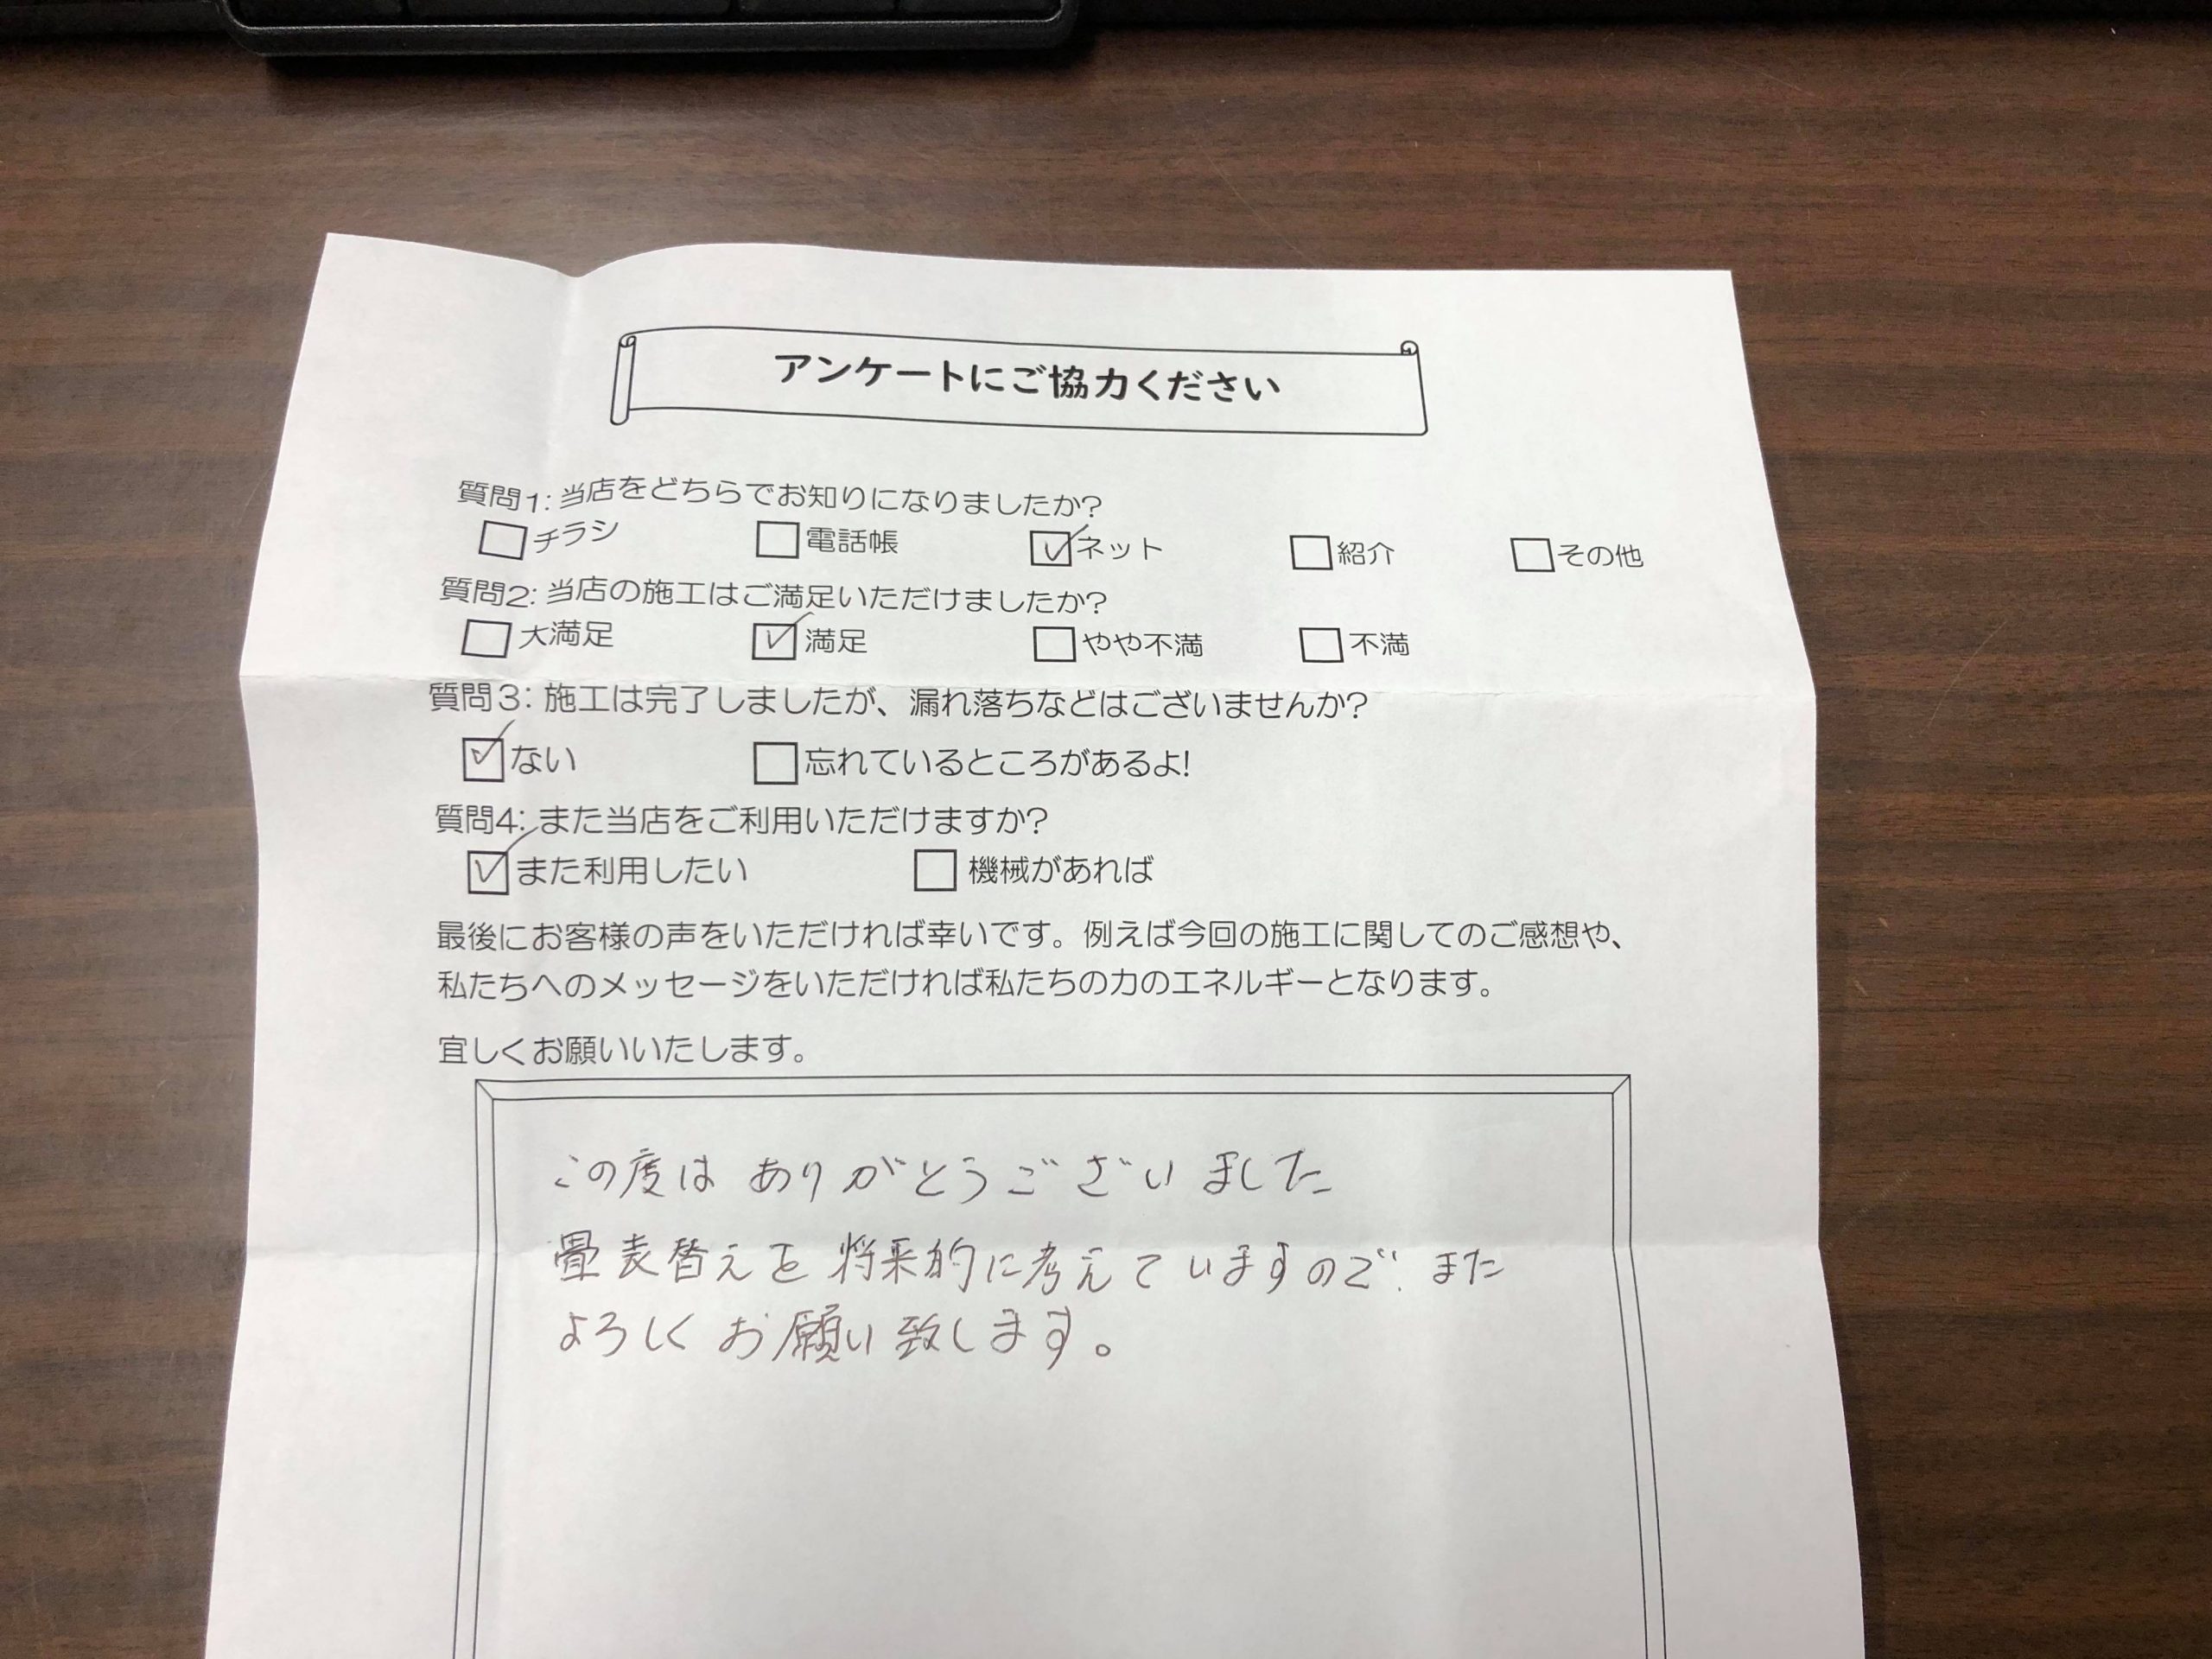 アンケートにご協力ください
質問1:当店をどちらでお知りになりましたか?
チラシ 電話帳 ネット 紹介 その他
質問2:当店の施工はご満足いただけましたか?
大満足 満足 やや不満 不満
質問3:施工は完了しましたが、漏れ落ちなどはございませんか?
ない 忘れているところがあるよ!
質問4:また当店をご利用いただけますか?
また利用したい 機械があれば
最後にお客様の声をいただければ幸いです。例えば今回の施工に関してのご感想や、
私たちへのメッセージをいただければ私たちの力のエネルギーとなります。
宜しくお願いいたします。
この度は ありがとうございました
畳表替えを将来的に考えていますので、また
よろしくお願い致します。